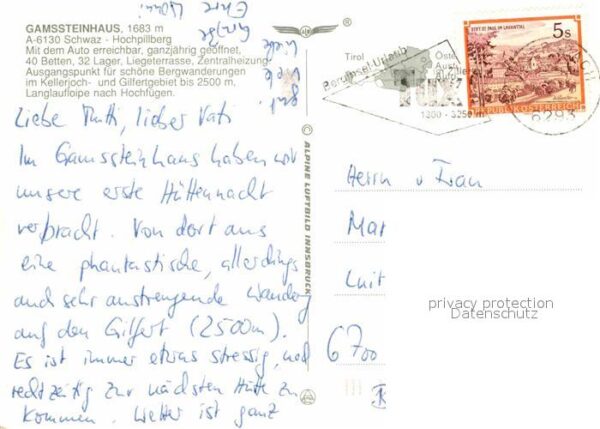 GAMSSTEINHAUS, 1683 m
A-6130 Schwaz - Hochpillberg
Mit dem Auto erreichbar, ganzjährig geöffnet,
40 Betten, 32 Lager, Liegeterrasse, Zentralheizung
Ausgangspunkt für schöne Bergwanderungen
im Kellerjoch- und Gilfertgebiet bis 2500 m.
Langlaufloipe nach Hochfügen.
Liebe Mutti, lieber Vati
Im Gamssteinhaus haben wir
unsere erste Hüttennacht
verbracht. Von dort aus
eine phantastische, allerdings
auch sehr anstrengende Wanderung
auf den Gilfert (2500m).
Es ist immer etwas stressig, und
rechtzeitig zur nächsten Hütte zu
kommen. Wetter ist ganz
gut.
Liebe
Grüße
Eure
ALPINE LUFTBILD INNSBRUCK
Tirol
Bergинsel-Urlaub
TUX
1300 - 3250 m
STIFT ST. PAUL IM LAVANTTAL
5s
REPUBLIK ÖSTERREICH
6293
Herrn u Frau
Mar
Luit
6700
privacy protection
Datenschutz